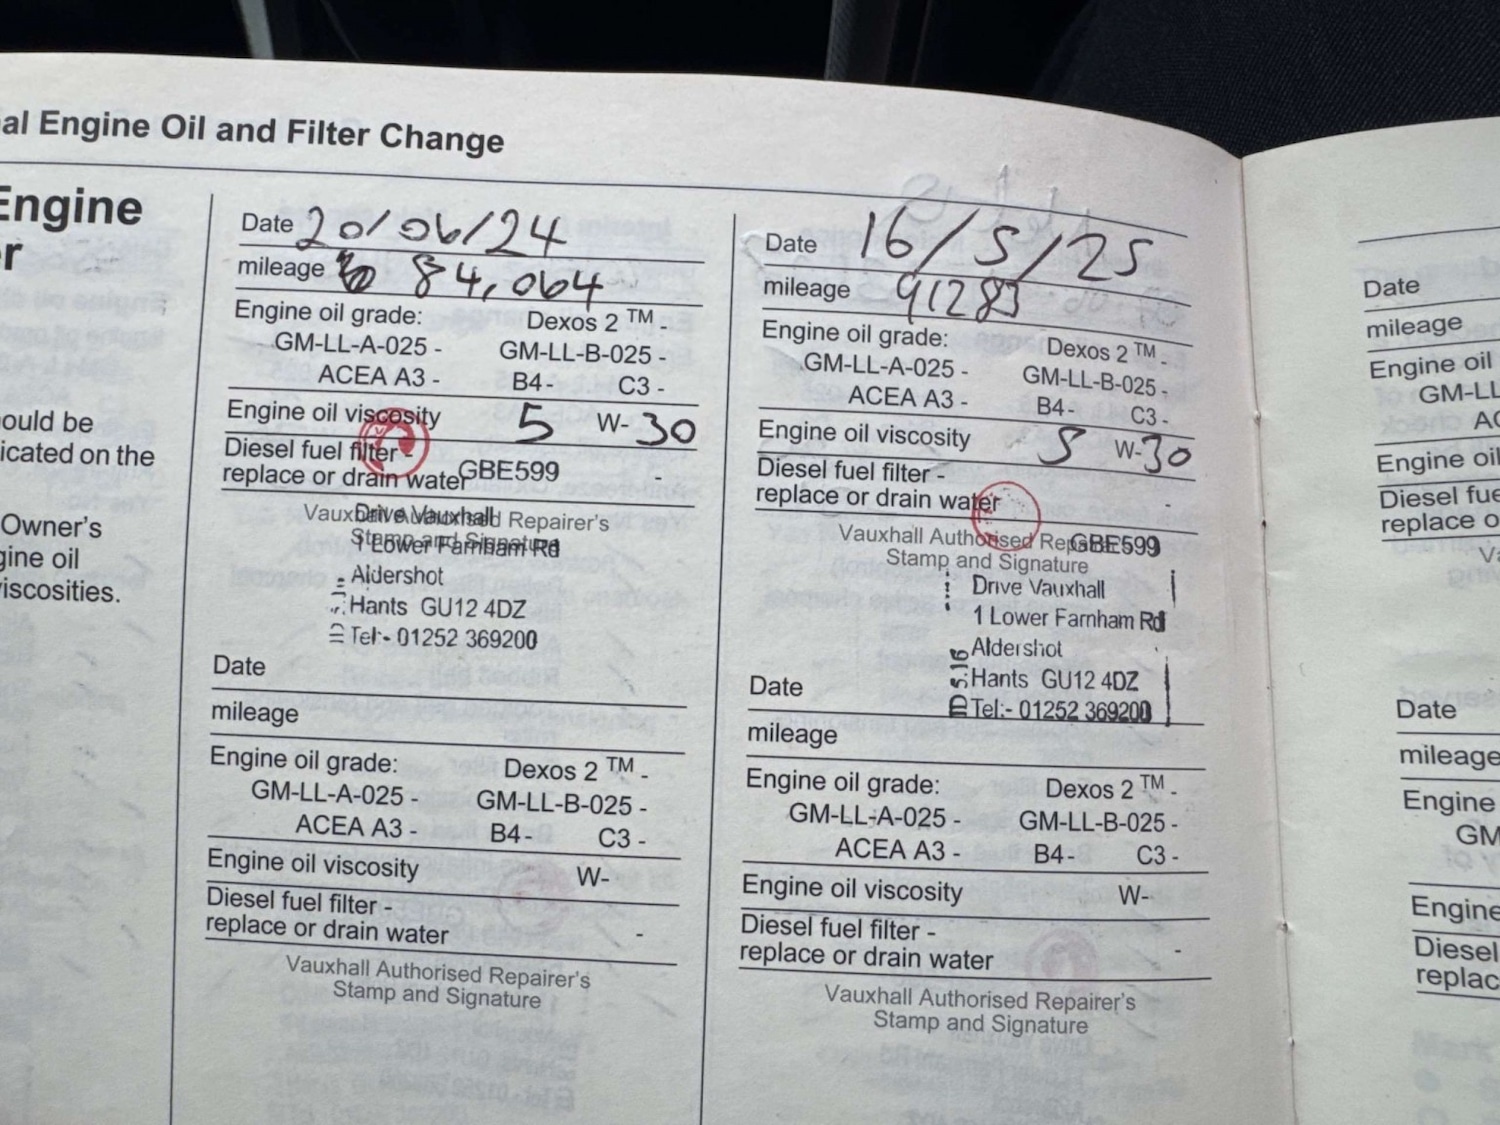 al Engine Oil and Filter Change
Engine
r
ould be
icated on the
Owner's
gine oil
viscosities.
Date 20/06/24
mileage 84,064
Engine oil grade: Dexos 2 ™ -
GM-LL-A-025 - GM-LL-B-025 -
ACEA A3 - B4- C3 -
Engine oil viscosity 5 W-30
Diesel fuel filter -
replace or drain water -
GBE599
Vauxhall Authorised Repairer's
Stamp and Signature
Drive Vauxhall
1 Lower Farnham Rd
Aldershot
Hants GU12 4DZ
Tel:- 01252 369200
Date
mileage
Engine oil grade: Dexos 2 ™ -
GM-LL-A-025 - GM-LL-B-025 -
ACEA A3 - B4- C3 -
Engine oil viscosity W-
Diesel fuel filter -
replace or drain water -
Vauxhall Authorised Repairer's
Stamp and Signature
Date 16/5/25
mileage 91283
Engine oil grade: Dexos 2 ™ -
GM-LL-A-025 - GM-LL-B-025 -
ACEA A3 - B4- C3 -
Engine oil viscosity 5 W-30
Diesel fuel filter -
replace or drain water -
Vauxhall Authorised Repairer's
Stamp and Signature
GBE599
Drive Vauxhall
1 Lower Farnham Rd
Aldershot
Hants GU12 4DZ
Tel:- 01252 369200
Date
mileage
Engine oil grade: Dexos 2 ™ -
GM-LL-A-025 - GM-LL-B-025 -
ACEA A3 - B4- C3 -
Engine oil viscosity W-
Diesel fuel filter -
replace or drain water -
Vauxhall Authorised Repairer's
Stamp and Signature
Date
mileage
Engine oil
GM-LL
AC
Engine oil
Diesel fue
replace o
Va
Date
mileage
Engine
GM
Engine
Diesel
replac